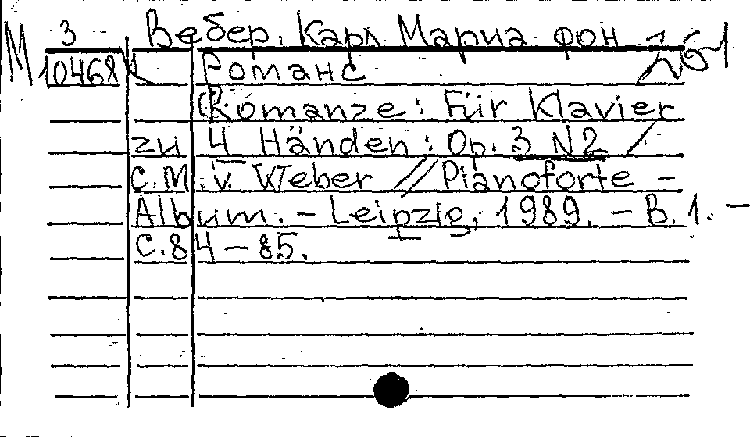 М 3 Вебер, Карл Мариа фон
10468 Романс
(Romanze: Für Klavier
zu 4 Händen: Op. 3 N2 /
C. M. v. Weber // Pianoforte -
Album. - Leipzig, 1989. - B. 1. -
С. 84 - 85.